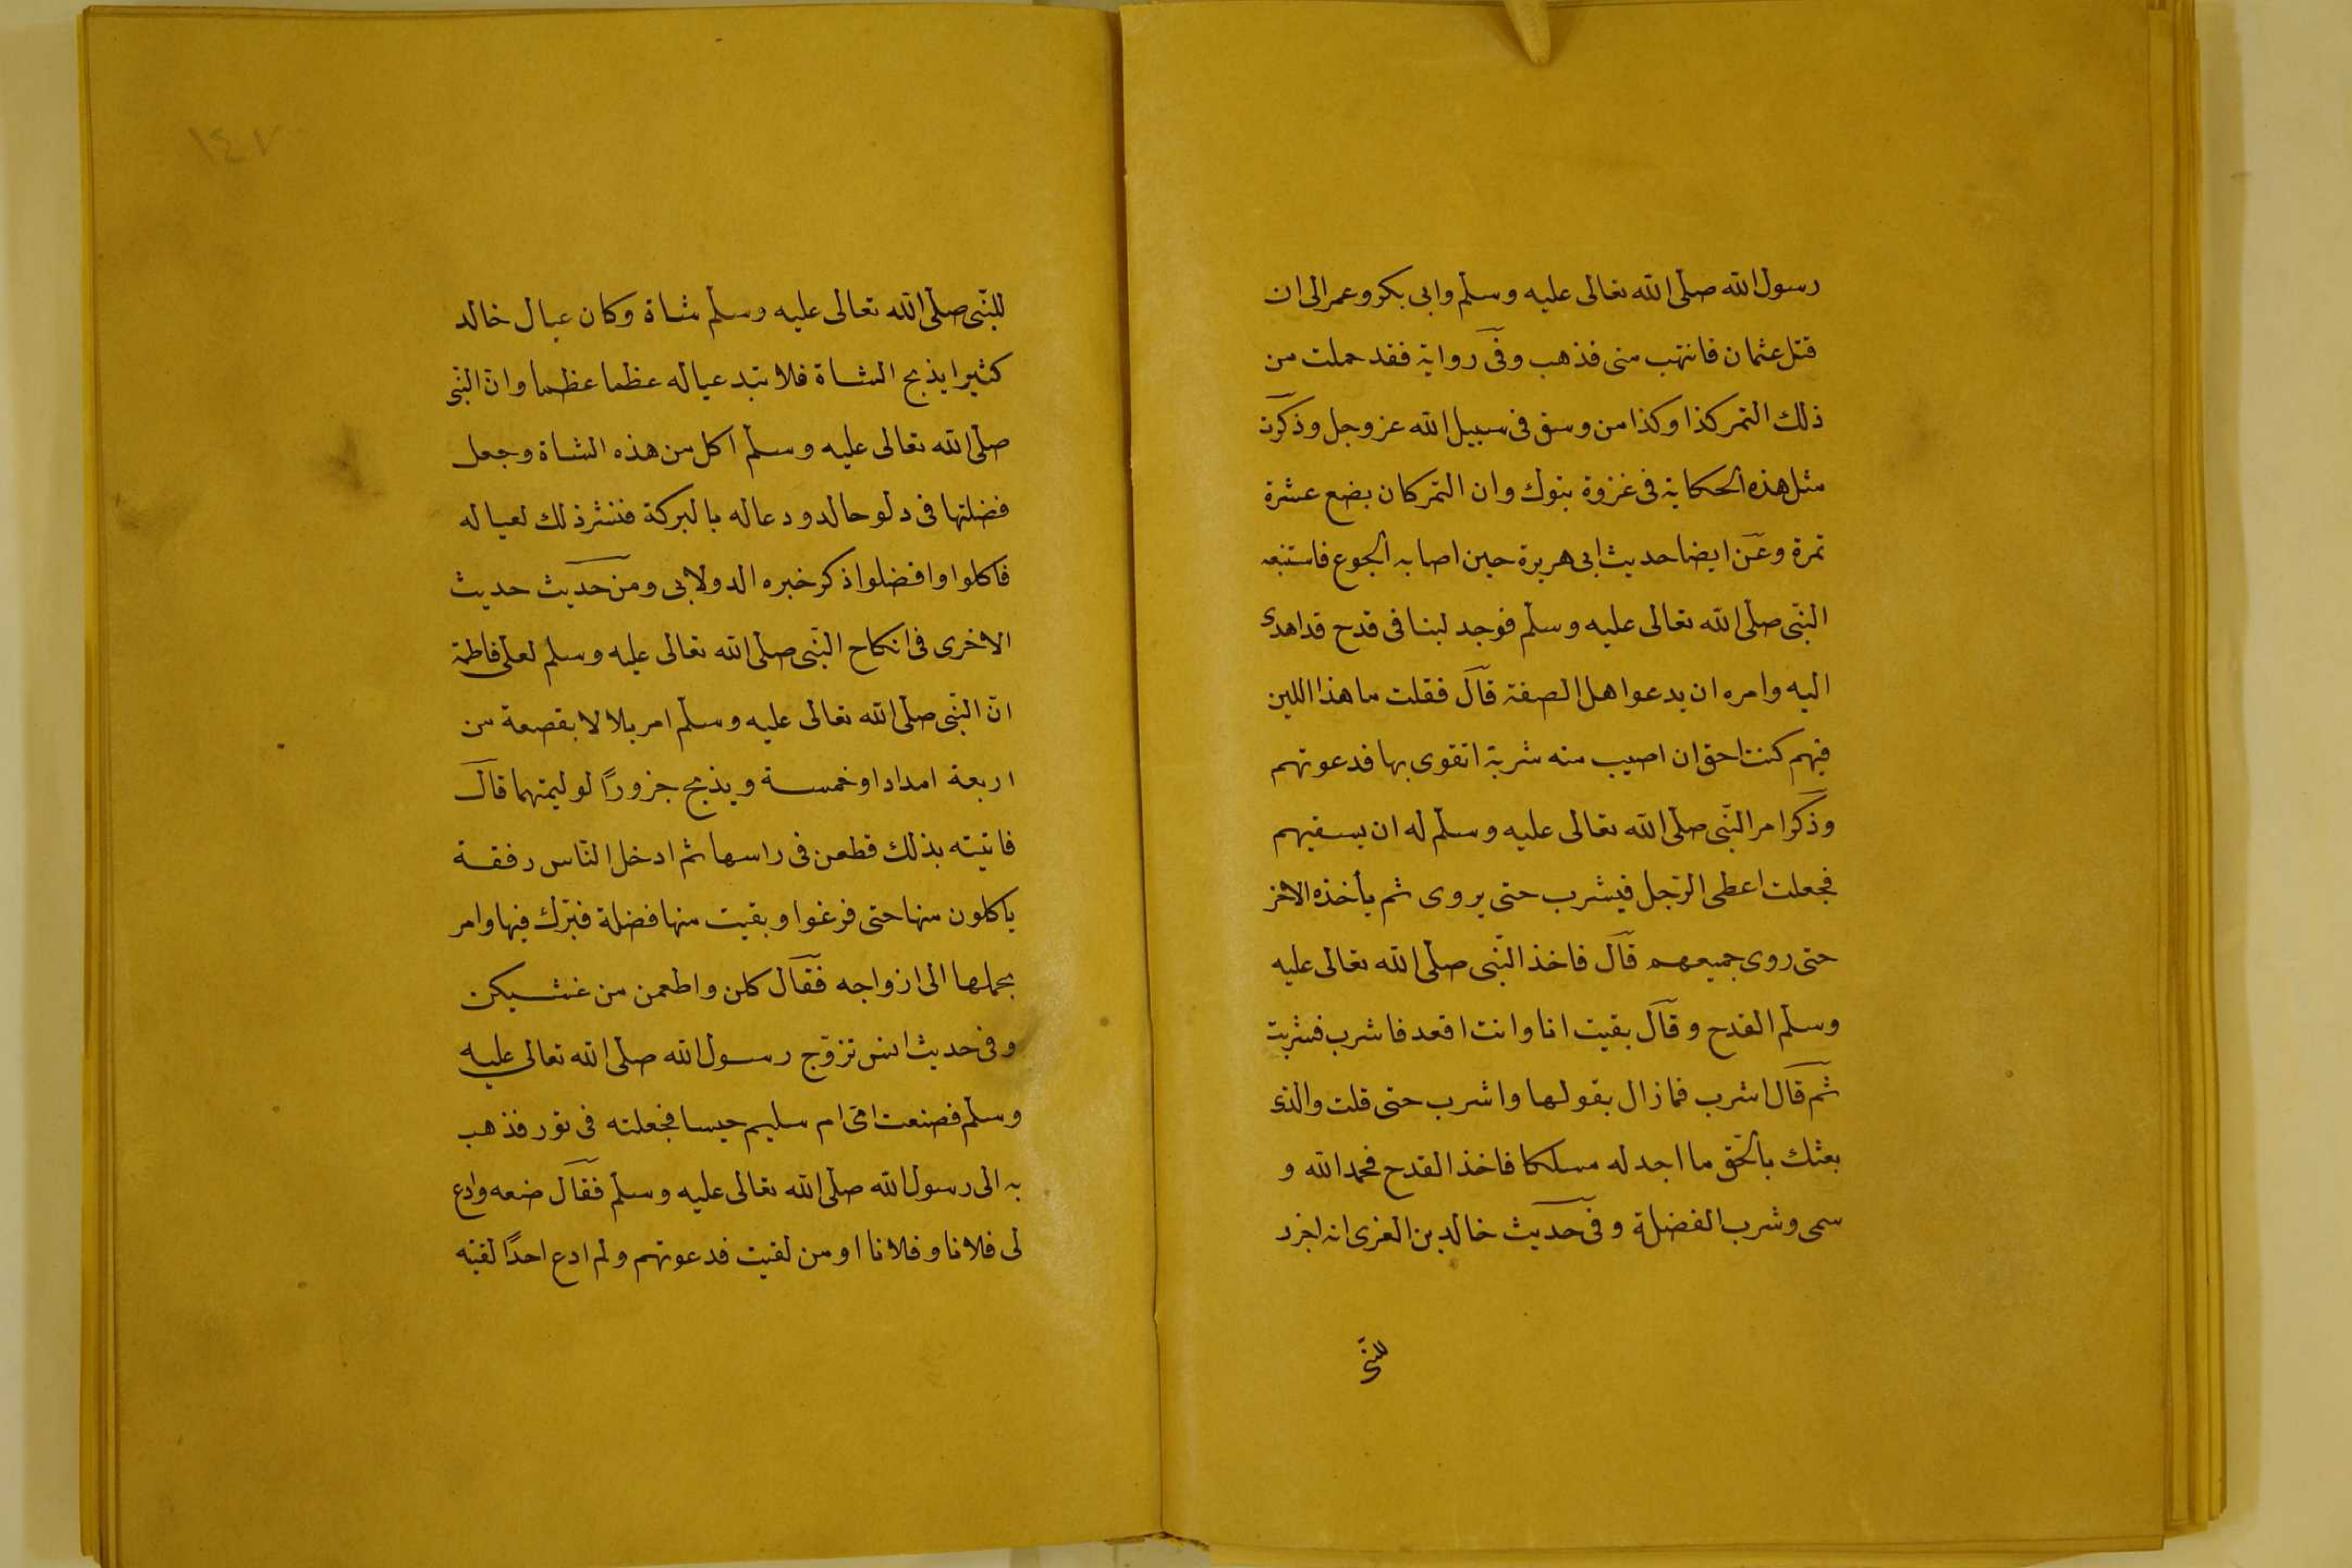 رسول الله صلى الله تعالى عليه وسلم وابى بكر وعمر الى ان
قتل عثمان فانتهب منى فذهب وفى رواية فقد حملت من
ذلك التمر كذا وكذا من وسق فى سبيل الله عز وجل وذكرت
مثل هذه الحكاية فى غزوة تبوك وان التمر كان بضع عشرة
تمرة وعن ايضا حديث ابى هريرة حين اصابه الجوع فاستتبعه
النّبى صلى الله تعالى عليه وسلم فوجد لبنا فى قدح قد اهدى
اليه وامره ان يدعوا هل الصفة قال فقلت ما هذا اللبن
فيهم كنت احق ان اصيب منه شربة اتقوى بها فدعوتهم
وذكر امر النّبى صلى الله تعالى عليه وسلم له ان يسقيهم
فجعلت اعطى الرّجل فيشرب حتى يروى ثم يأخذه الاخر
حتى روى جميعهم قال فاخذ النّبى صلى الله تعالى عليه
وسلم القدح وقال بقيت انا وانت اقعد فاشرب فشربت
ثم قال اشرب فما زال يقولها واشرب حتى قلت والذى
بعثك بالحّق ما اجد له مسلكا فاخذ القدح فحمد الله و
سمى وشرب الفضلة وفى حديث خالد بن العزى انه اجزر
للنّبى
١٤٧
للنّبى صلى الله تعالى عليه وسلم شاة وكان عيال خالد
كثيرا يذبح الشاة فلا تبد عياله عظما عظما وانّ النّبى
صلى الله تعالى عليه وسلم اكل من هذه الشاة وجعل
فضلتها فى دلو خالد ودعا له بالبركة فنثر ذلك لعياله
فاكلوا وافضلوا ذكر خبره الدولابى ومن حديث حديث
الاخرى فى انكاح النّبى صلى الله تعالى عليه وسلم لعلى فاطمة
انّ النّبى صلى الله تعالى عليه وسلم امر بلالا بقصعة من
اربعة امداد او خمسة ويذبح جزورًا لوليمتهما قال
فاتيته بذلك فطعن فى راسها ثم ادخل النّاس رفقة
ياكلون منها حتى فرغوا وبقيت منها فضلة فبرّك فيها وامر
بحملها الى ازواجه فقال كلن واطعمن من غشيكن
وفى حديث انس تزوّج رسول الله صلى الله تعالى عليه
وسلم فصنعت امّى ام سليم حيسا فجعلته فى تور فذهب
به الى رسول الله صلى الله تعالى عليه وسلم فقال ضعه وادع
لى فلانا وفلانا او من لقيت فدعوتهم ولم ادع احدًا لقيته